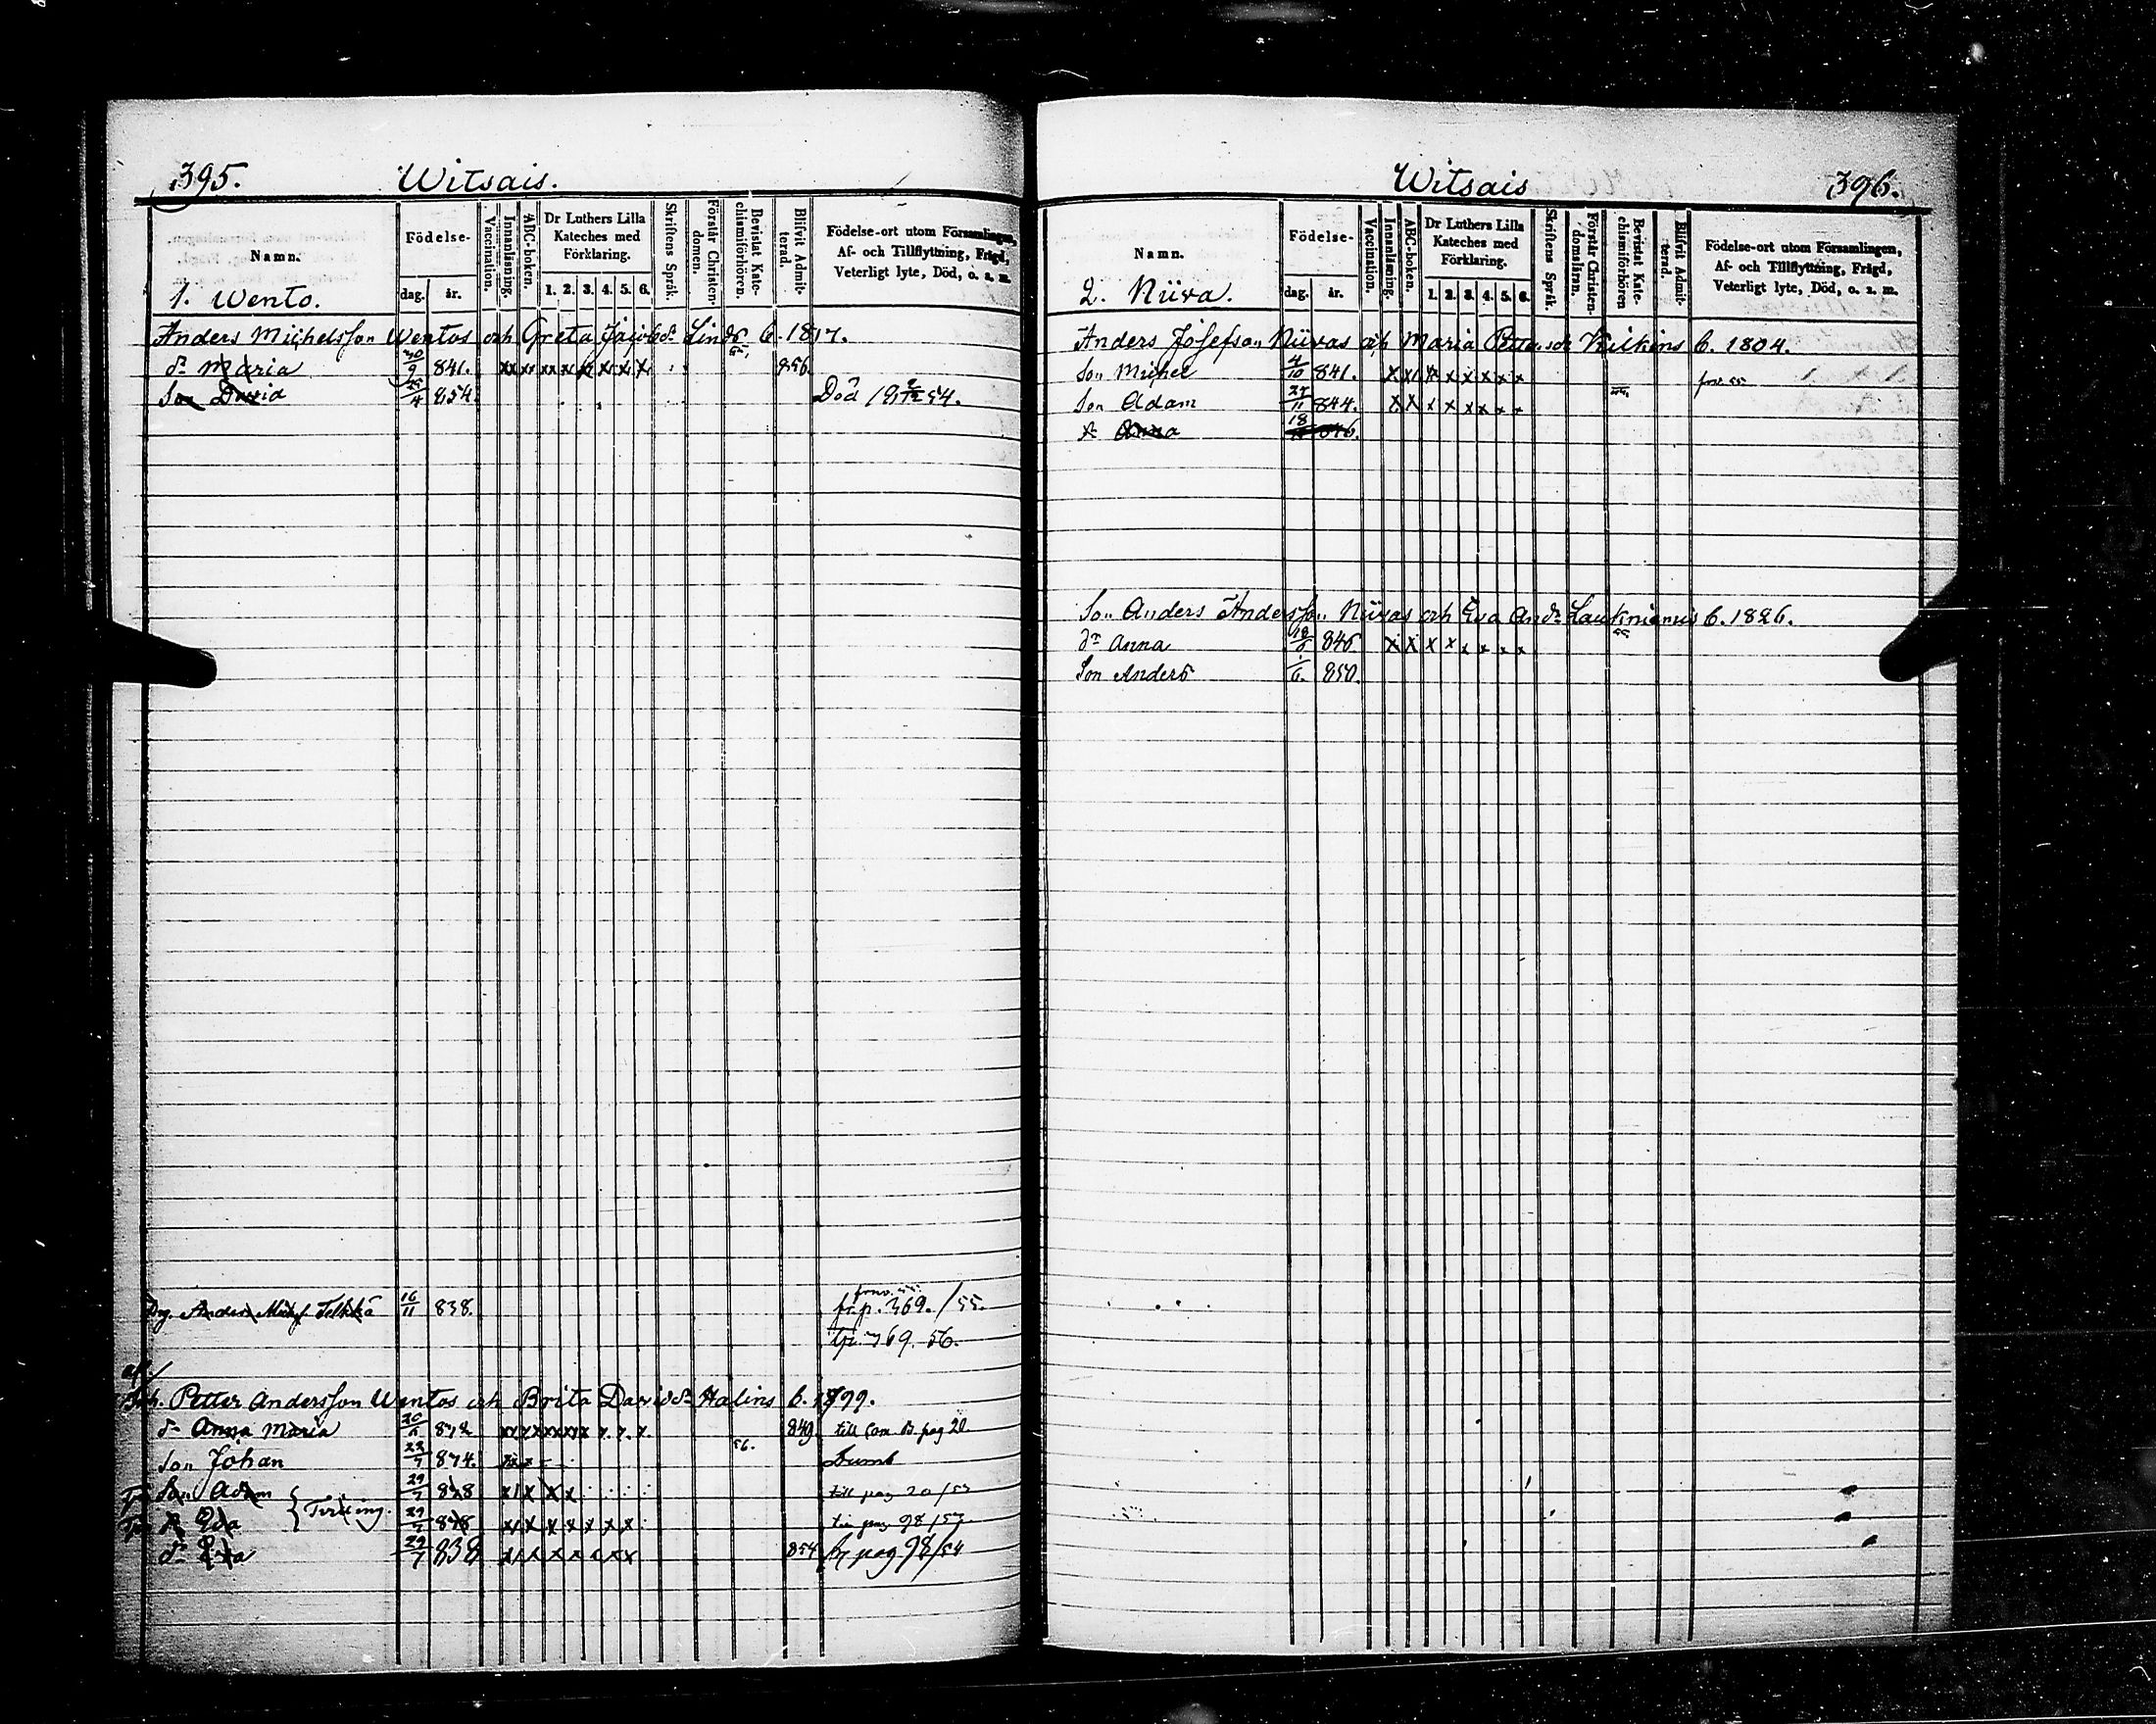 395. Witsais.
Namn. Födelse- dag. år. Vaccination. Innanläsning. ABC-boken. Dr Luthers Lilla Kateches med Förklaring. 1. 2. 3. 4. 5. 6. Skriftens Språk. Förstår Christendomen. Bevistat Katechismiförhören. Blifvit Admitterad. Födelse-ort utom Församlingen, Af- och Tillflyttning, Frägd, Veterligt lyte, Död, o. s. m.
1. Wento.
Anders Michelsson Wentos och Greta Jacobsdr Linds 6. 1817.
dr Maria 30/9 841. xx xx xx x x x x x 856.
Son David 25/4 854. Död 19/12 54.
Anders Telkkä 16/11 838. fr. p. 369. / 55.
369. 56.
Petter Andersson Wentos och Brita Davidsdr Halins 6. 1799.
dr Anna Maria 20/6 832 849. till Com. B. pag 20.
Son Johan 22/7 834. 56. Dumb
Son Adam 29/7 838 x x x x x till pag 20/53
dr Eva 29/7 838 x x x x x x x pag 98/53.
dr Eva 29/7 838 854 pag 98/54
Witsais 396.
Namn. Födelse- dag. år. Vaccination. Innanläsning. ABC-boken. Dr Luthers Lilla Kateches med Förklaring. 1. 2. 3. 4. 5. 6. Skriftens Språk. Förstår Christendomsläran. Bevistat Katechismiförhören Blifvit Admitterad. Födelse-ort utom Församlingen, Af- och Tillflyttning, Frägd, Veterligt lyte, Död, o. s. m.
2. Niira.
Anders Josefson Niiras och Maria Pettersdr Kilkins 6. 1804.
Son Michel 4/10 841. x x x x x x x x
Son Adam 27/11 844. x x x x x x x x
dr Anna 18/ 846.
Son Anders Andersson Niiras och Eva Andr. Laukniemis 6. 1826.
dr Anna 846 x x x x x x x x
Son Anders 1/6. 850.